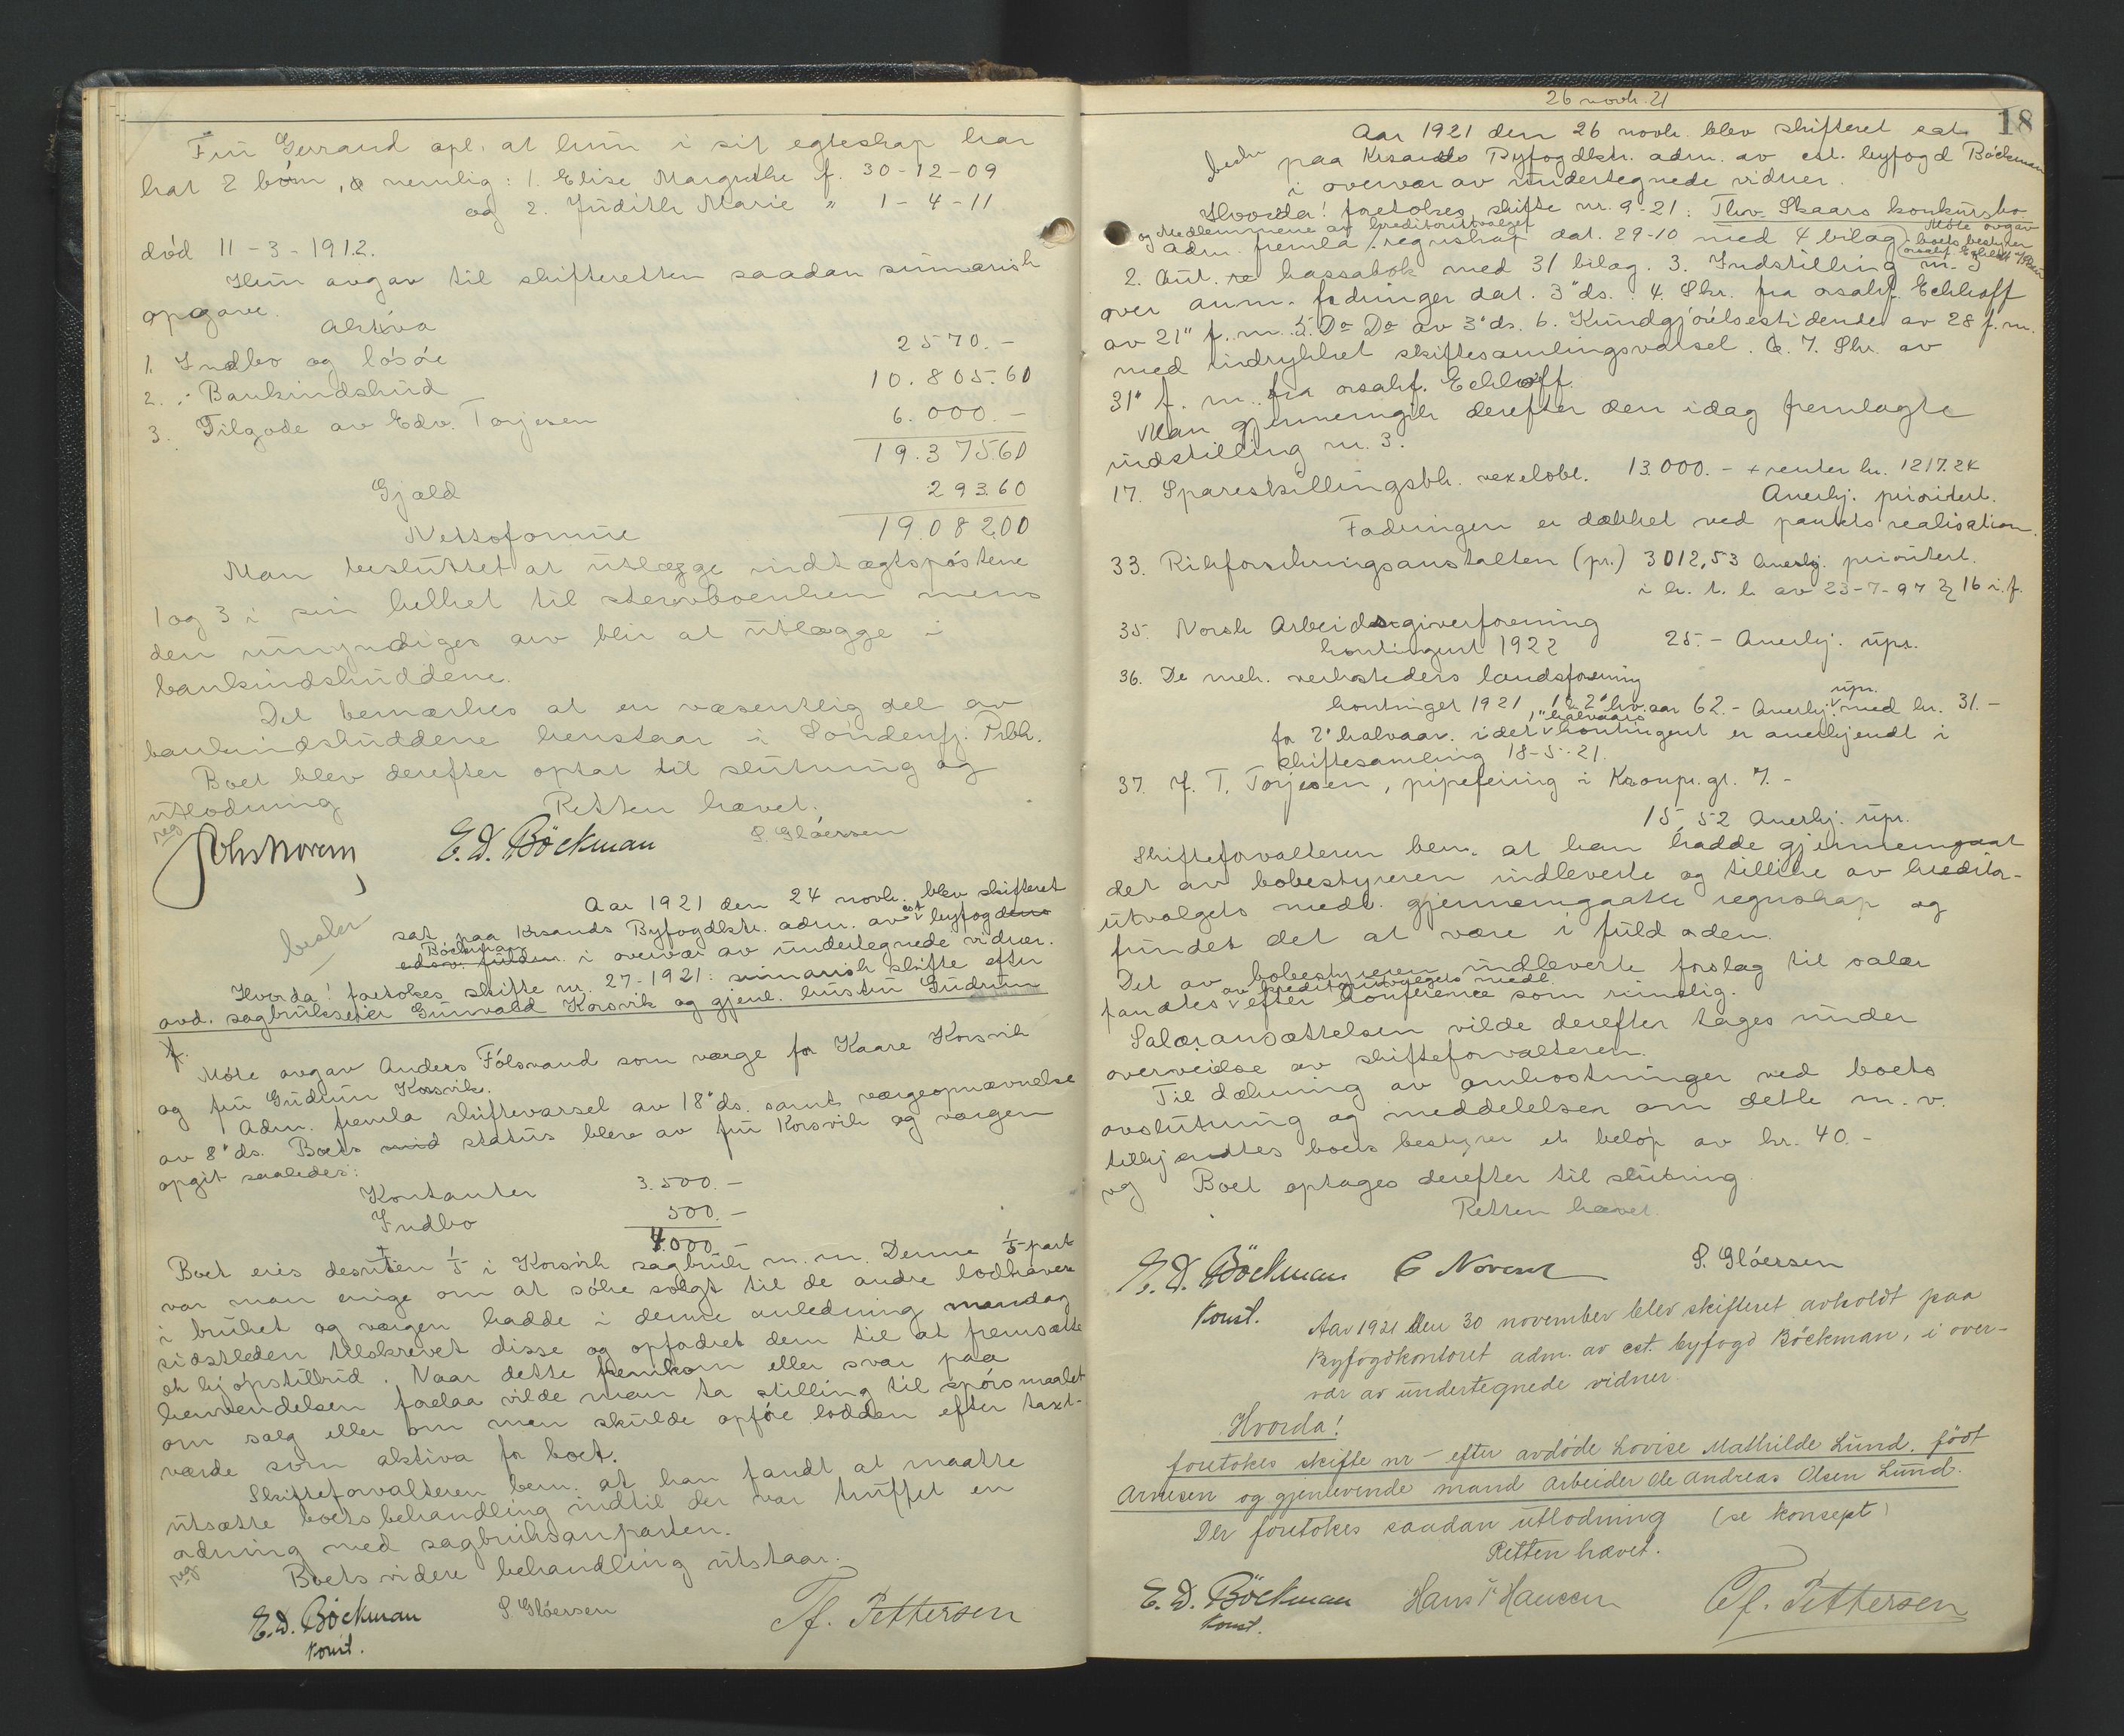 Fru Gerrand opl. at hun i sit egteskap har
hat 2 börn, nemlig: 1. Elise Margrethe f. 30-12-09
og 2. Judith Marie " 1-4-11
död 11-3-1912.
Hun avgav til skifteretten saadan summarisk
opgave.
Aktiva
1. Indbo og lösöre 2570.-
2. Bankindskud 10.805.60
3. Tilgode av Edv. Torjesen 6.000.-
19.375.60
Gjæld 293.60
Nettoformue 19.082.00
Man besluttet at utlægge indtægtspostene
1 og 3 i sin helhet til stervboenken mens
den umyndiges arv blir at utlægge i
bankindskuddene.
Det bemærkes at en væsentlig del av
bankindskuddene henstaar i Söndenfj. Prbk.
Boet blev derefter optat til slutning og
utlodning
Retten hævet.
reg
E. D. Böckman S. Glöersen
Aar 1921 den 24 novbr. blev skifteret
besler
sat paa Krsands Byfogdktr. adm. av cst. byfogdens
edsv. fuldm. Böckman i overvær av undertegnede vidner.
Hvorda! foretokes skifte nr. 27-1921: summarisk skifte efter
avd. sagbrukseier Gunvald Korsvik og gjenl. hustru Gudrun
f.
Möte avgav Anders Fölsvand som værge for Kaare Korsvik
og fru Gudrun Korsvik.
Adm. fremla skiftevarsel av 18' ds. samt værgeopnævnelse
av 8' ds. Boets status blev av fru Korsvik og værgen
opgit saaledes:
Kontanter 3.500.-
Indbo 500.-
4.000.-
Boet eies desuten 1/5 i Korsvik sagbruk m.m. Denne 1/5-part
var man enige om at söke solgt til de andre lodhavere
i bruket og værgen hadde i denne anledning mandag
sidstleden tilskrevet disse og opfordret dem til at fremsætte
et kjöpstilbud. Naar dette fremkom eller svar paa
henvendelsen forelaa vilde man ta stilling til spörsmaalet
om salg eller om man skulde opföre lodden efter taxt-
værde som aktiva for boet.
Skifteforvalteren bem. at han fandt at maatte
utsætte boets behandling indtil der var truffet en
ordning med sagbruksanparten.
reg
Boets videre behandling utstaar.
E. D. Böckman S. Glöersen Tf. Pettersen
Konst.
26 novb. 21
18
Aar 1921 den 26 novb. blev skifteret sat
paa Krsands Byfogdktr. adm. av cst. byfogd Böckman
i overvær av undertegnede vidner.
Hvorda! foretokes skifte nr. 9-21: Thv. Skaars konkursbo
og Medlemmene av kreditorutvalget Möte avgav boets bestyrer
Adm. fremla 1. regnskap dat. 29-10 med 4 bilag
2. Aut. kassabok med 31 bilag. 3. Indstilling nr. 3
over anm. fordringer dat. 3" ds. 4. Skr. fra orsakf. Eckhoff
av 21" f. m. 5. Do Do av 3' ds. 6. Kundgjörelsestidende av 28 f. m.
med indrykket skiftesamlingsvarsel. 7. Skr. av
31" f. m. fra orsakf. Eckhoff.
Man gjennemgik derefter den idag fremlagte
indstilling nr. 3.
17. Spareskillingsbk. vexelobl. 13.000.- + renter kr. 1217.24
Anerkj. prioritert.
Fordringen er dækket ved pantets realisation.
33. Rikforsikringsanstalten (pr.) 3012,53 Anerkj. prioritert.
i h. t. l. av 23-7-97 § 16 i. f.
35. Norsk Arbeidsgiverforening
kontingent 1922 25.- Anerkj. upr.
36. De mek. verksteders landsforening
kontinget 1921, 1 & 2' hv.aar 62.- Anerkj. upr. med kr. 31.-
for 2' halvaar, idet 1" halvaars kontingent er anerkjendt i
skiftesamling 18-5-21.
37. J. T. Torjesen, pipefeiing i Kronpr.gt. 7.-
15,52 Anerkj. upr.
Skifteforvalteren bem. at han hadde gjennemgaat
det av bobestyreren indleverte og tillike av kreditor-
utvalgets medl. gjennemgaatte regnskap og
fundet det at være i fuld orden.
Det av bobestyreren indleverte forslag til salær
fandtes av kreditorutvalgets medl. efter konference som rimelig.
Salæransættelsen vilde derefter tages under
overveielse av skifteforvalteren.
Til dækning av omkostninger ved boets
avslutning og meddelelser om dette m. v.
tilkjendtes boets bestyrer et belöp av kr. 40.-
Boet optages derefter til slutning.
Retten hævet.
E. D. Böckman S. Glöersen
Konst.
Aar 1921 den 30 november blev skifteret avholdt paa
Byfogdkontoret adm. av cst. byfogd Böckman, i over-
vær av undertegnede vidner.
Hvorda!
foretokes skifte nr – efter avdöde Lovise Mathilde Lund, födt
Arnesen og gjenlevende mand Arbeider Ole Andreas Olsen Lund.
Der foretokes saadan utlodning (se konsept)
Retten hævet.
E. D. Böckman Hans Hansen Tf. Pettersen
Konst.